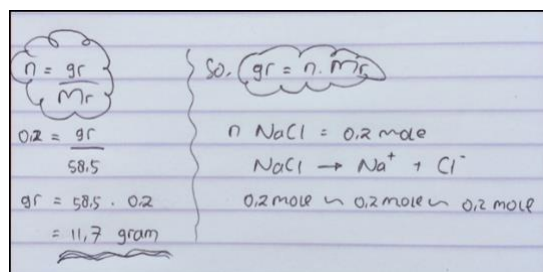 n = gr
Mr
0,2 = gr
58,5
gr = 58,5 . 0,2
= 11,7 gram
So, gr = n . Mr
n NaCl = 0,2 mole
NaCl → Na⁺ + Cl⁻
0,2 mole ~ 0,2 mole ~ 0,2 mole